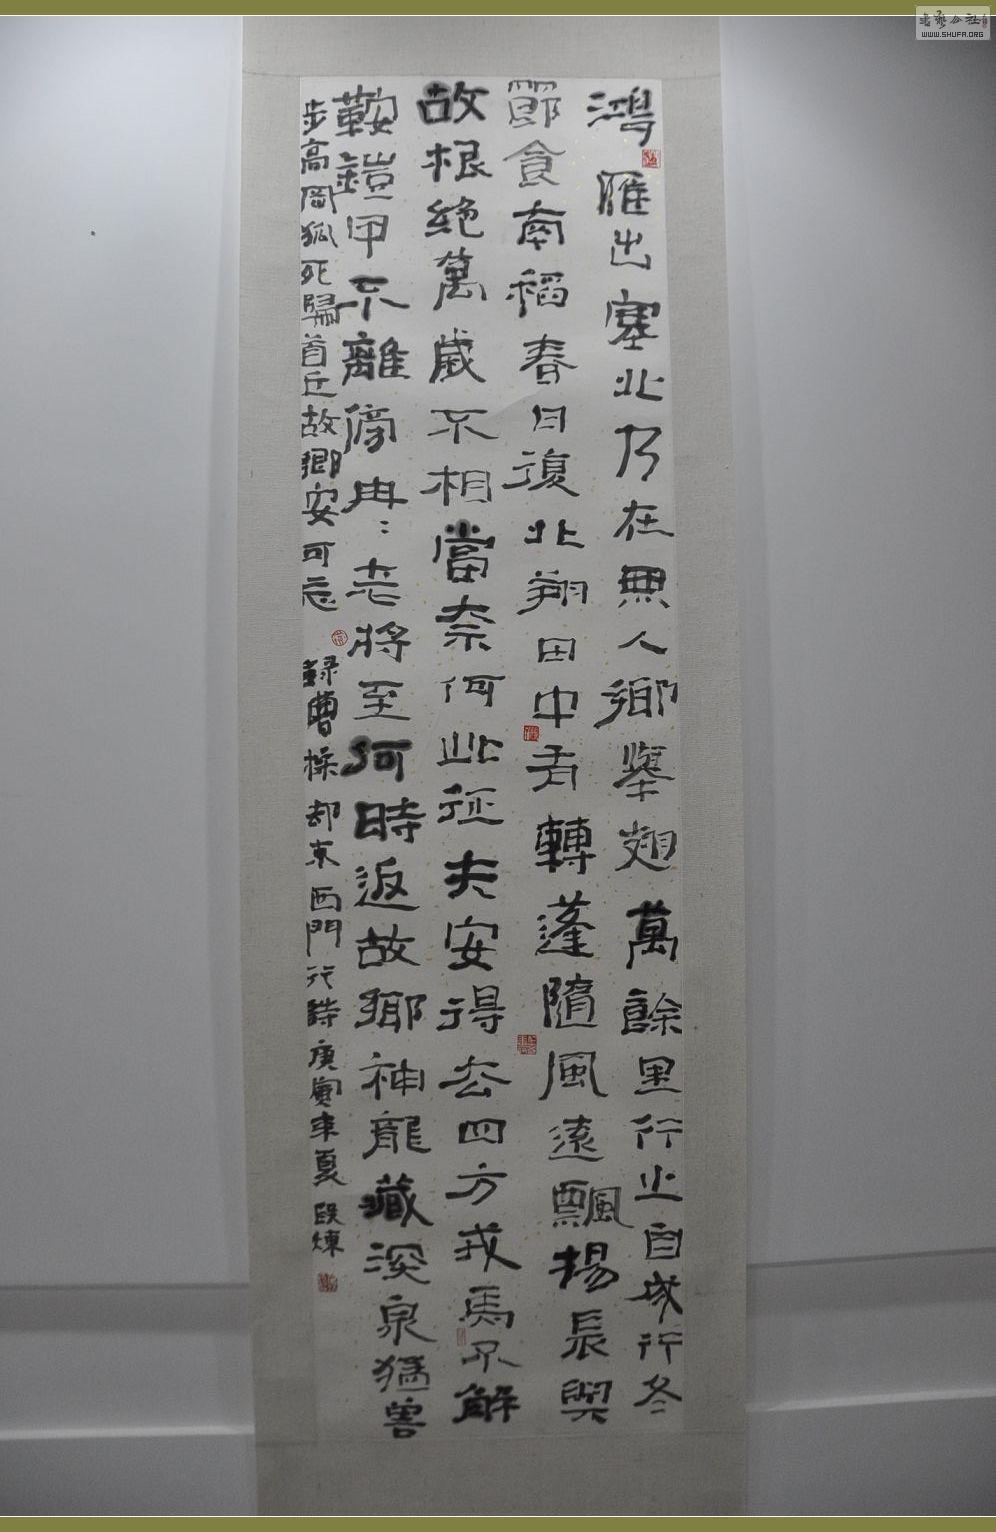 鴻雁出塞北乃在無人鄉舉翅萬餘里行止自成行冬
節食南稻春日復北翔田中有轉蓬隨風遠飄揚長與
故根絕萬歲不相當奈何此征夫安得去四方戎馬不解
鞍鎧甲不離傍冉〻老將至何時返故鄉神龍藏深泉猛獸
步高岡狐死歸首丘故鄉安可忘
錄曹操却東西門行詩庚寅年夏段煉
書法公社
WWW.SHUFA.ORG